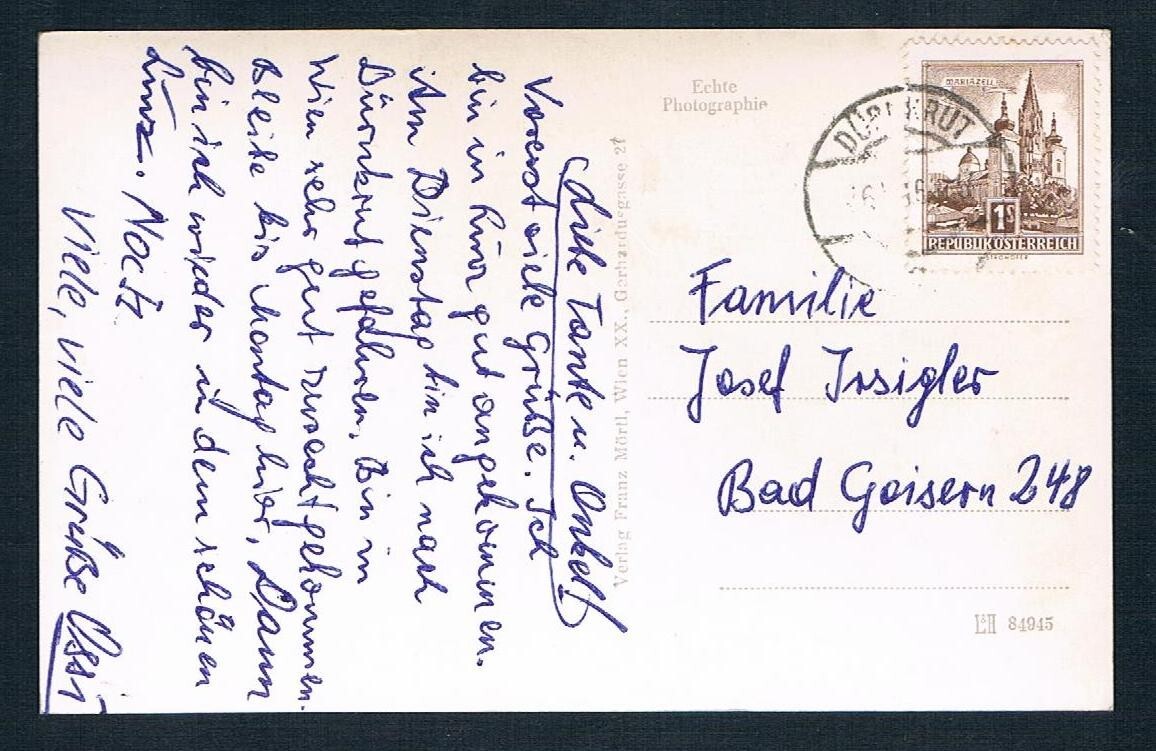 Liebe Tante u. Onkel!
Vorerst viele Grüße. Ich
bin in gut angekommen.
Am Dienstag bin ich nach
Dürnkrut gefahren. Bin in
Wien sehr gut zurechtgekommen.
Bleibe bis Montag hier. Dann
bin ich wieder in dem schönen
Linz. Noch
viele, viele Grüße Ossi
Verlag Franz Mörtl, Wien XX., Gerhardusgasse 27
Echte
Photographie
MARIAZELL
1S
REPUBLIK ÖSTERREICH
DÜRNKRUT
Familie
Josef Irsigler
Bad Goisern 248
L&H 84945